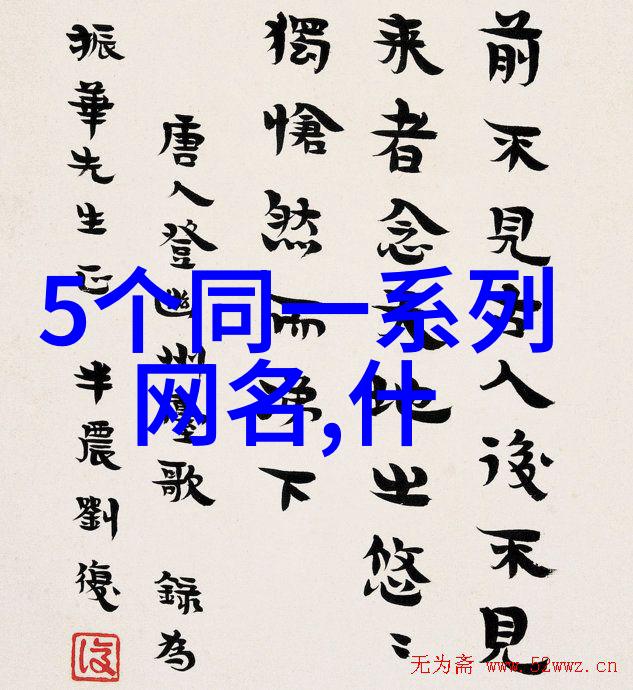 前不見古人後不見
来者念天地之悠〻
獨愴然而涕下
唐人登幽州臺歌 錄為
振華先生正 半農劉復
復
5个同一系列
网名,什
无为斋 www.52wwz.cn